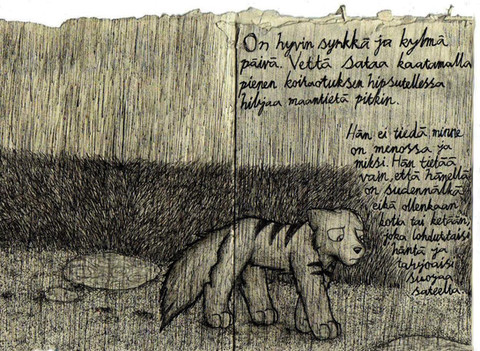 On hyvin synkkä ja kylmä
päivä. Vettä sataa kaatamalla
pienen koiraotuksen hipsutellessa
hiljaa maantietä pitkin.
Hän ei tiedä minne
on menossa ja
miksi. Hän tietää
vain, että hänellä
on sudennälkä
eikä ollenkaan
kotia tai ketään,
joka lohduttaisi
häntä ja
tarjoaisi
suojaa
sateelta.